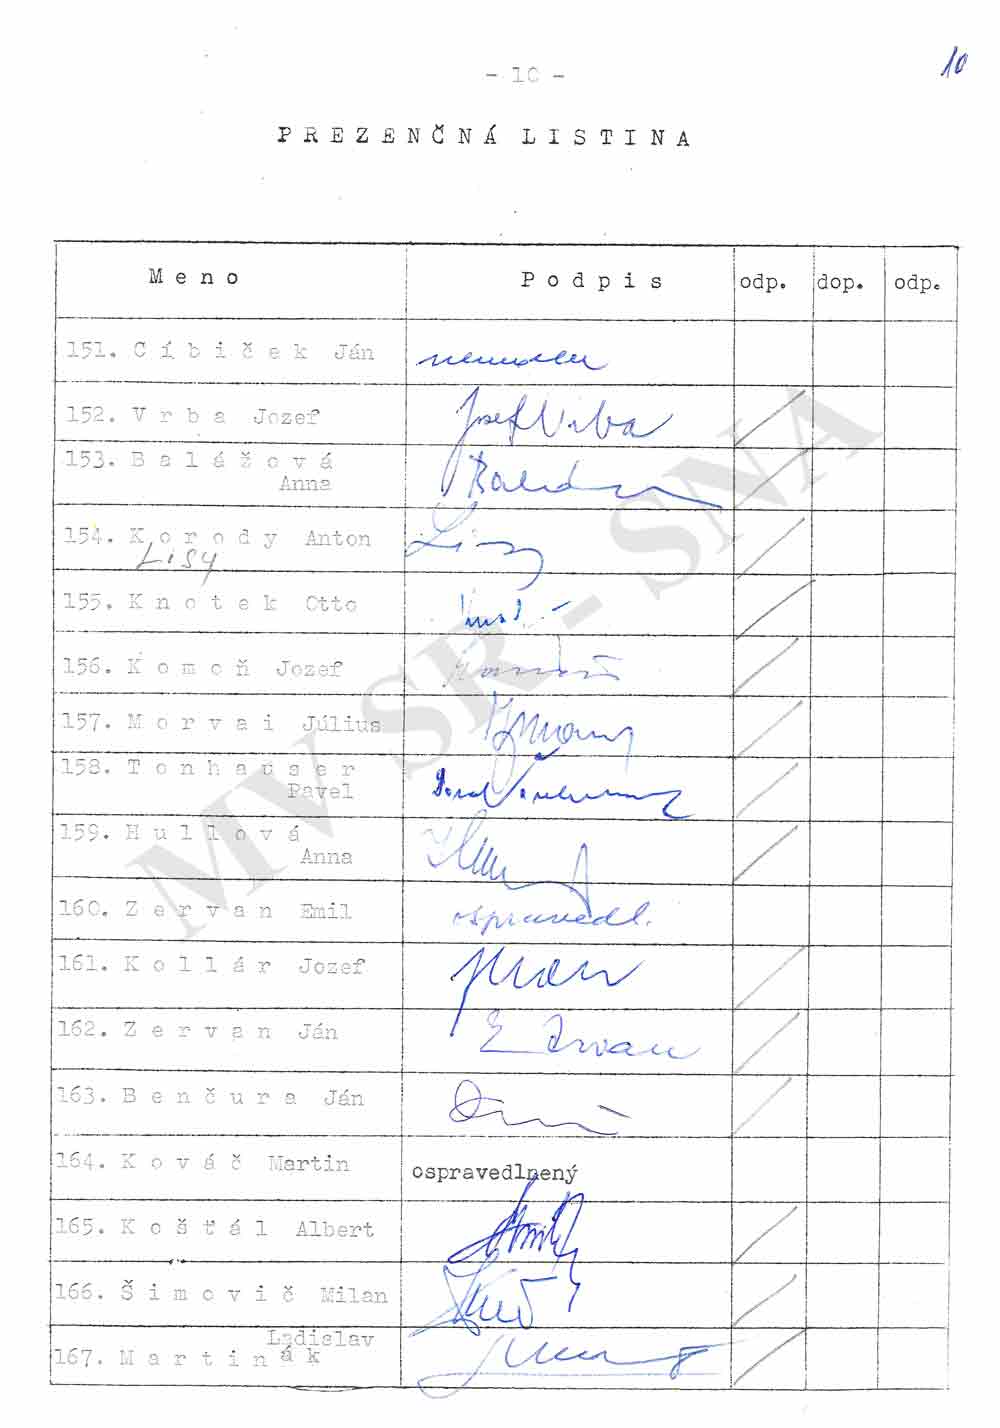 10
- 10 -
PREZENČNÁ LISTINA
Meno Podpis odp. dop. odp.
151. Cíbiček Ján
152. Vrba Jozef Jozef Vrba
153. Balážová
Anna
154. Korody Anton Lisy
LISY
155. Knotek Otto
156. Komoň Jozef
157. Morvai Július
158. Tonhauser
Pavel
159. Hullová
Anna
160. Zervan Emil ospravedl.
161. Kollár Jozef
162. Zervan Ján
163. Benčura Ján
164. Kováč Martin ospravedlnený
165. Košťál Albert
166. Šimovič Milan
Ladislav
167. Martinák
MV SR - SNA